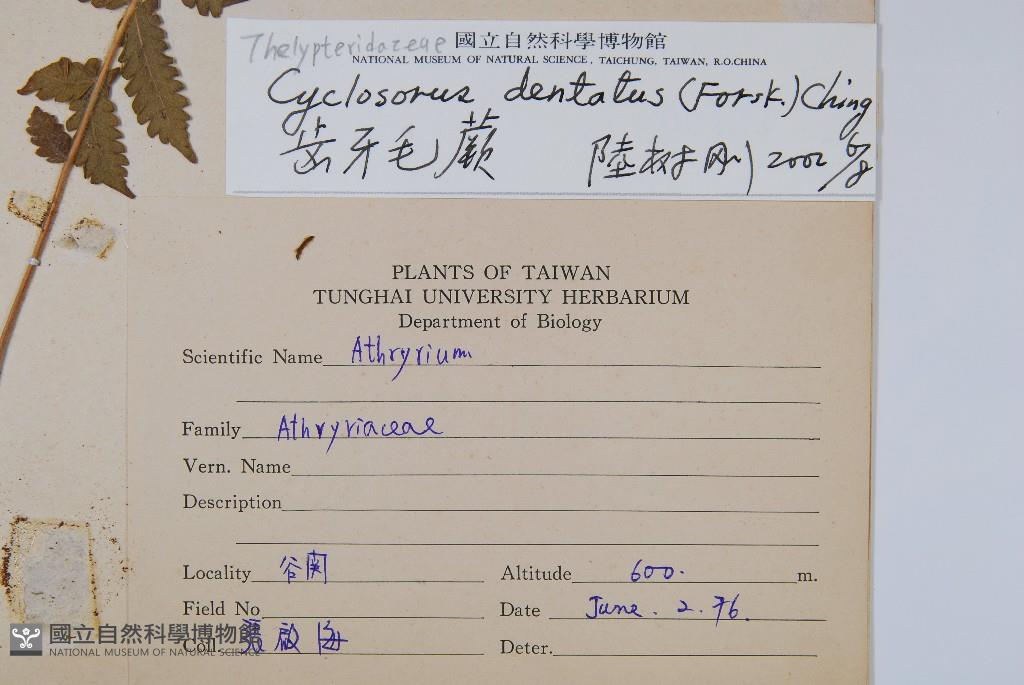 Thelypteridaceae 國立自然科學博物館
NATIONAL MUSEUM OF NATURAL SCIENCE, TAICHUNG, TAIWAN, R.O.CHINA
Cyclosorus dentatus (Forsk.) Ching
齒牙毛蕨 陸樹剛 2002 6/8
PLANTS OF TAIWAN
TUNGHAI UNIVERSITY HERBARIUM
Department of Biology
Scientific Name Athryrium
Family Athryriaceae
Vern. Name
Description
Locality 谷関 Altitude 600. m.
Field No Date June. 2. 76.
Coll. 張啟海 Deter.
國立自然科學博物館
NATIONAL MUSEUM OF NATURAL SCIENCE